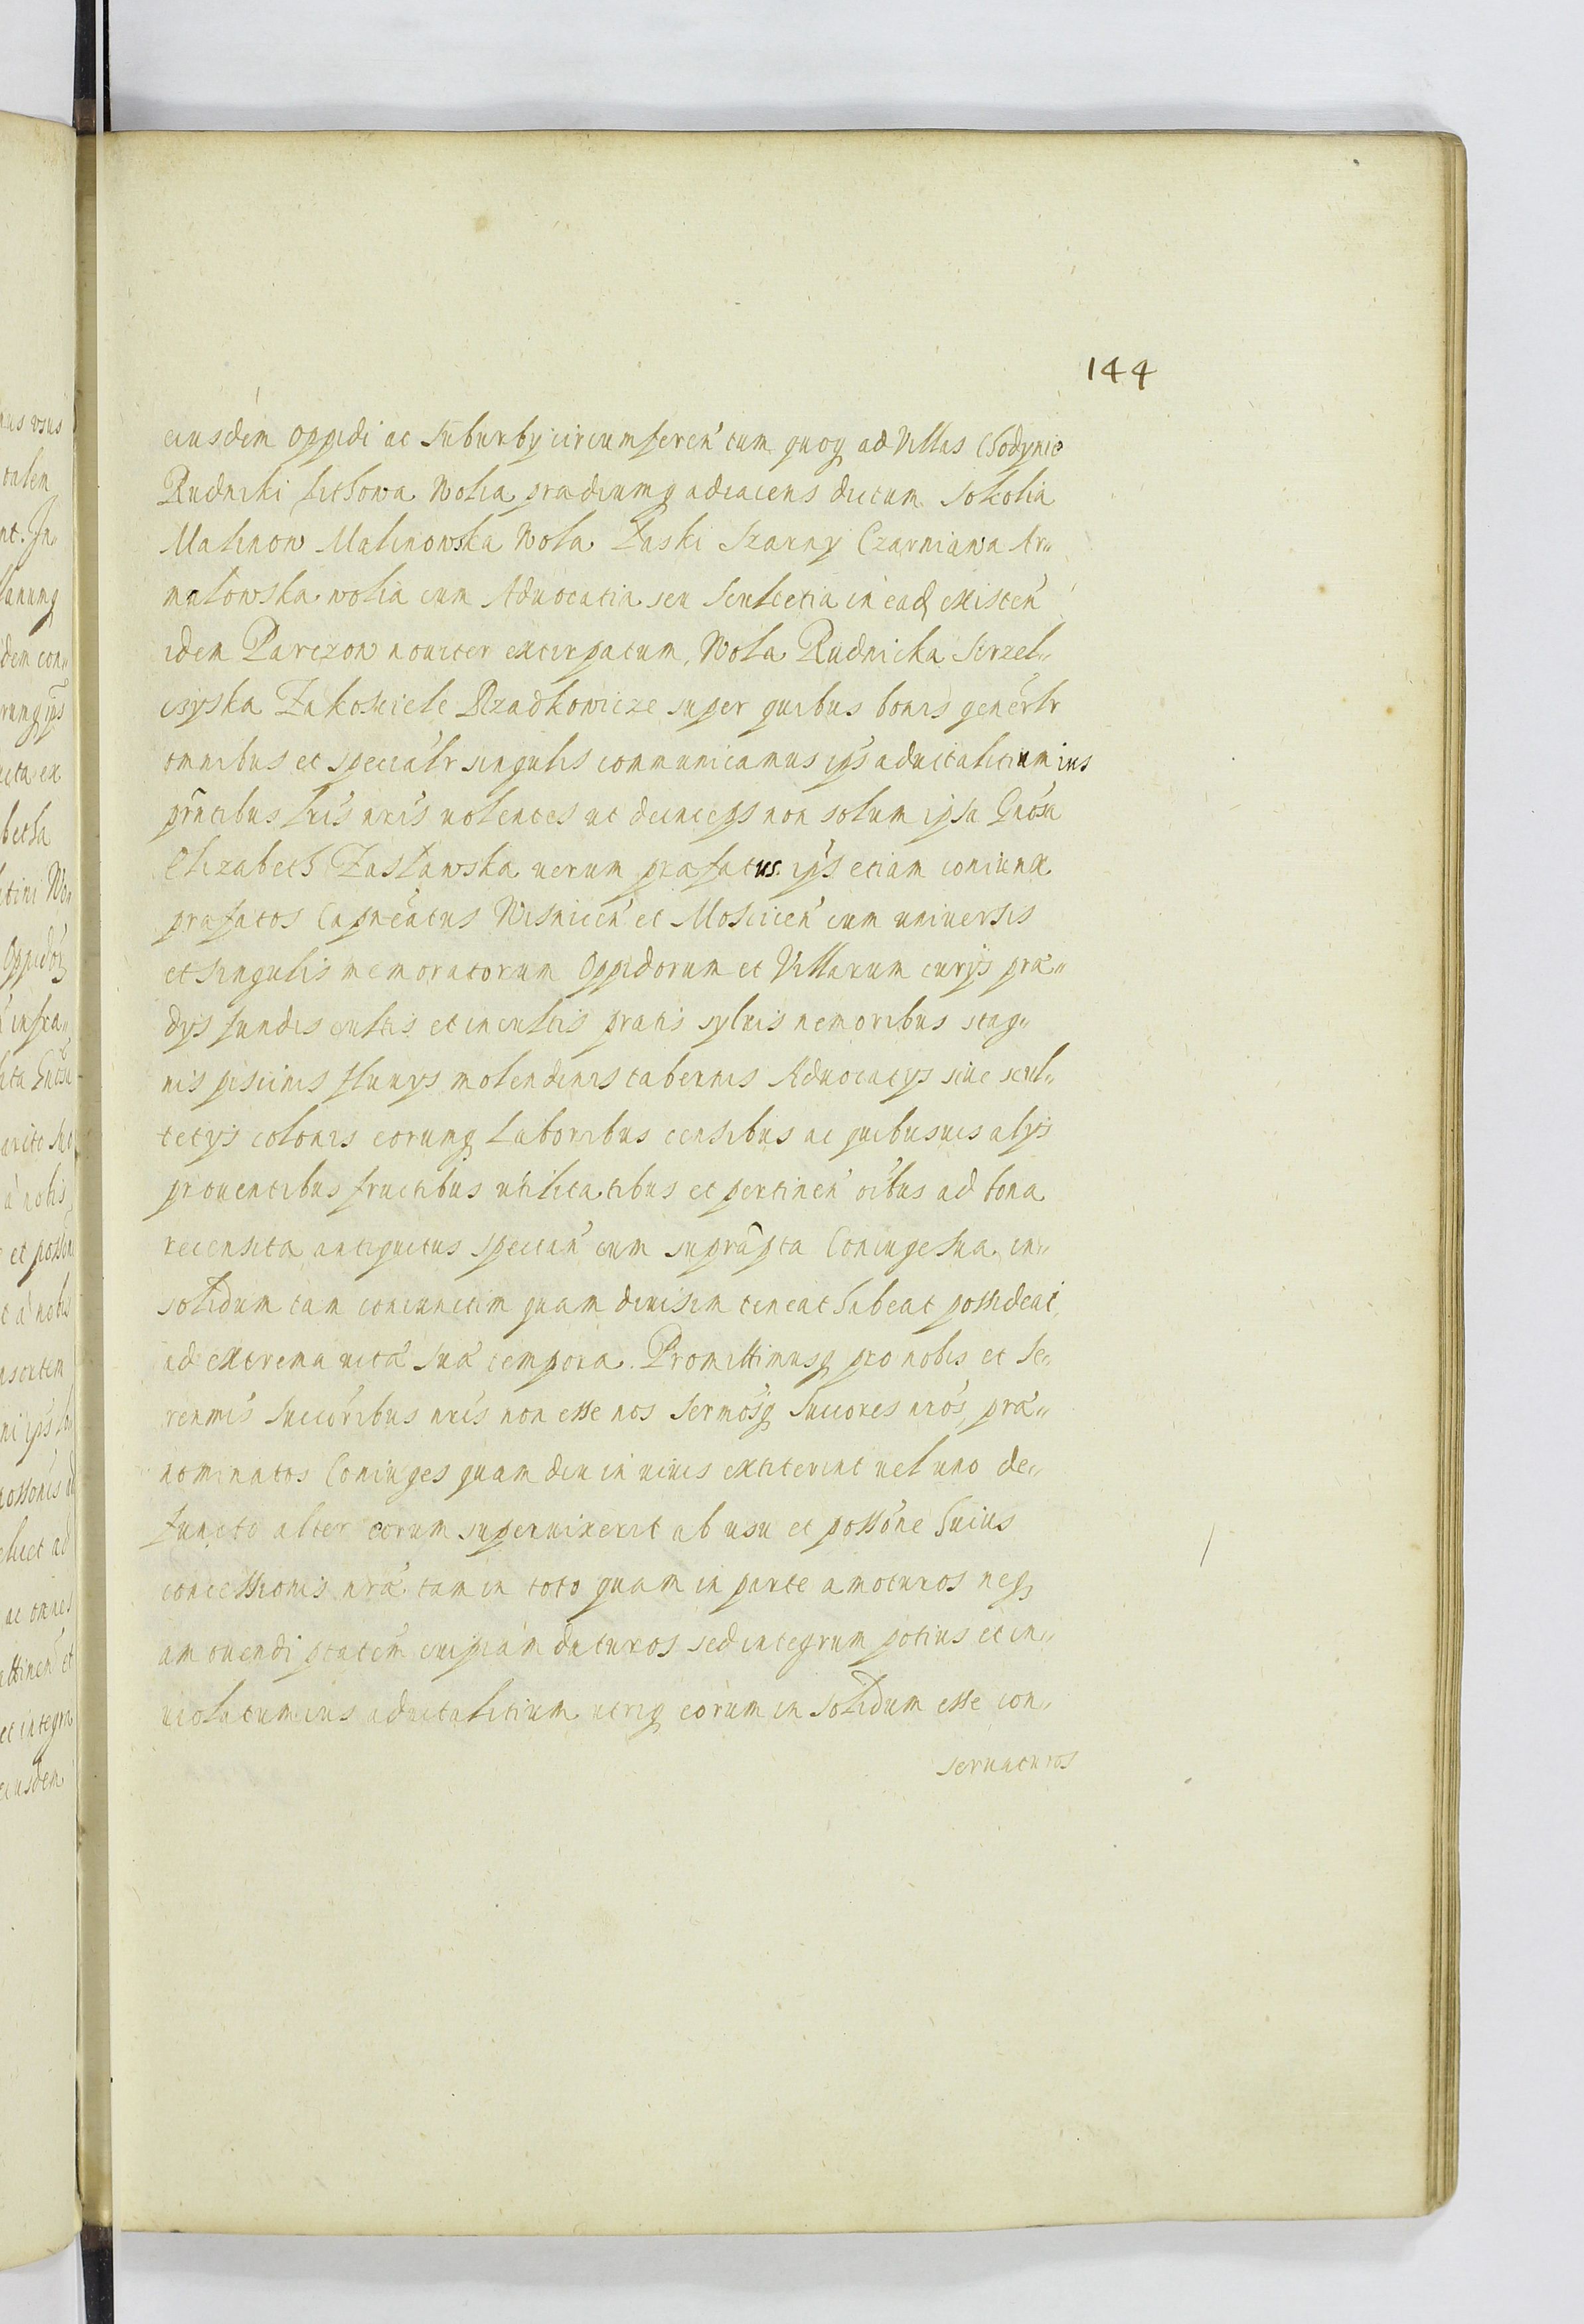 144
eiusdem Oppidi ac Suburby circumferen̄ tum quoq ad Villas Chodynie
Rudniki Lichowa Wolia prædiumq adiacens dictum Sokolia
Malinow Malinowska Wola Laski Szarny Czarniawa Ar„
matowska wolia cum Aduocatia seu Scultetia in eadẹ existen̄
idem Parczow nouiter extirpatum, Wola Rudnicka Strzel„
czyska Zakosciele Rzadkowicze super quibus bonis generlr
omnibus et specialr singulis communicamus ips aduitalitium ius
pr̄ntibus lris nris uolentes ut deinceps non solum ipsa Gnosa
Elizabeth Zasławska uerum præfatus ips etiam coniunx
præfatos Capneatus Wisnicen̄ et Moscicen̄ cum universis
et singulis memoratorum Oppidorum et Villarum curijs præ„
dijs fundis cultis et incultis pratis syluis nemoribus stag„
nis piscinis fluuijs molendinis tabernis Aduocatijs siue scul„
tetijs colonis eorumq Laboribus censibus ac quibusuis alijs
prouentibus fructibus utilitatibus et pertinen̄ oibus ad bona
recensita antiquitus spectan̄ cum suprapta Coniuge sua in„
solidum tam coniunctim quam diuisim teneat habeat possideat
ad extrema uitæ suæ tempora. Promittimusq pro nobis et Se„
renmis Succoribus nris non esse nos Sermosq Succores nros, præ„
nominatos Coniuges quam diu in uiuis extiterint uel uno de„
functo alter eorum superuixerit ab usu et possone huius
concessionis nræ tam in toto quam in parte amoturos neq
amouendi ptatem cuipiam daturos sed integrum potius et in„
uiolatum ius aduitalitium utriq eorum in solidum esse con„
seruaturos